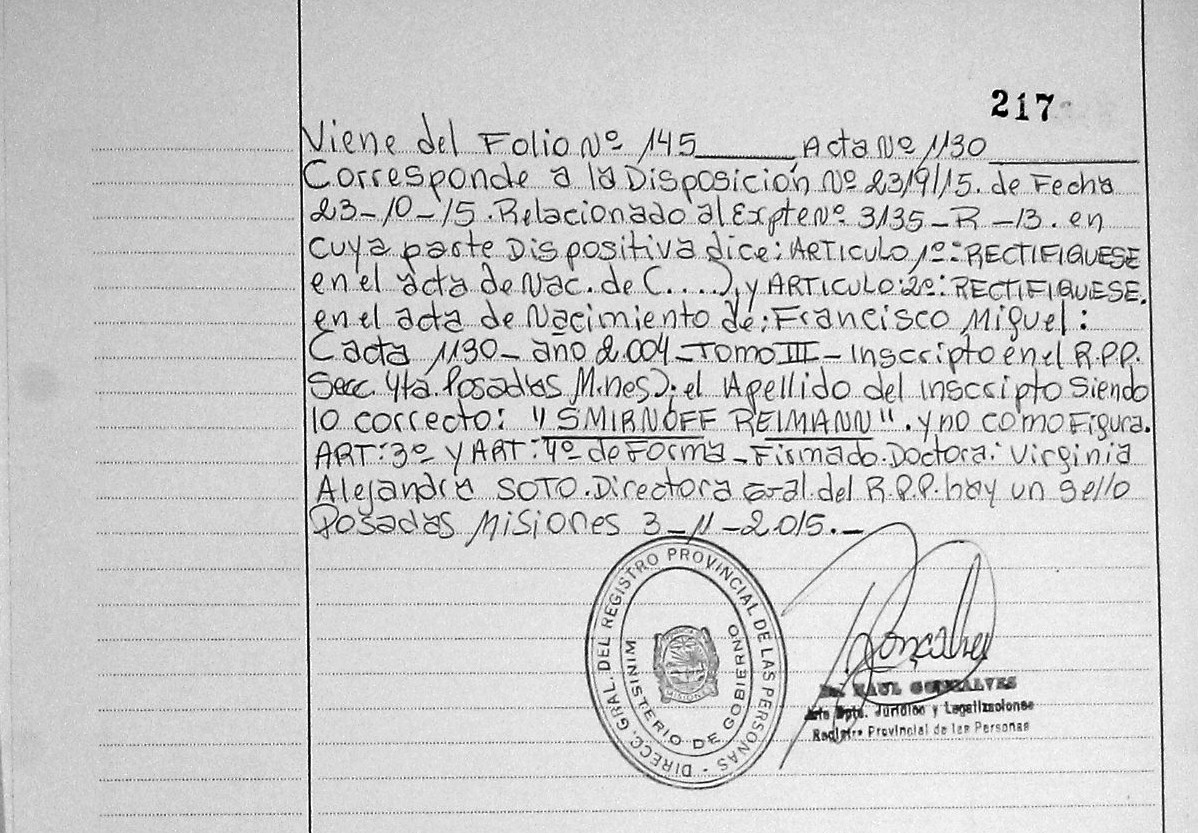 217
Viene del Folio Nº 145 Acta Nº 1130
Corresponde a la Disposición Nº 2319/15. de Fecha
23-10-15. Relacionado al Expte Nº 3135-R-13. en
cuya parte Dispositiva dice: ARTICULO 1º: RECTIFIQUESE
en el acta de Nac. de C....), y ARTICULO: 2º: RECTIFIQUESE.
en el acta de Nacimiento de: Francisco Miguel:
Cacta 1130- año 2.004-TOMO III- Inscripto en el R.P.P.
Secc. 4ta. Posadas M.nes): el Apellido del inscripto siendo
lo correcto: "SMIRNOFF REIMANN". y no como Figura.
ART: 3º y ART: 4º de Forma-Firmado. Doctora: Virginia
Alejandra SOTO. Directora Gral. del R.P.P. hay un sello
Posadas Misiones 3-11-2.015.-
DIRECC. GRAL. DEL REGISTRO PROVINCIAL DE LAS PERSONAS -
MINISTERIO DE GOBIERNO
MISIONES
Dr. RAUL GONSALVES
Dpto. Jurídico y Legalizaciones
Registro Provincial de las Personas